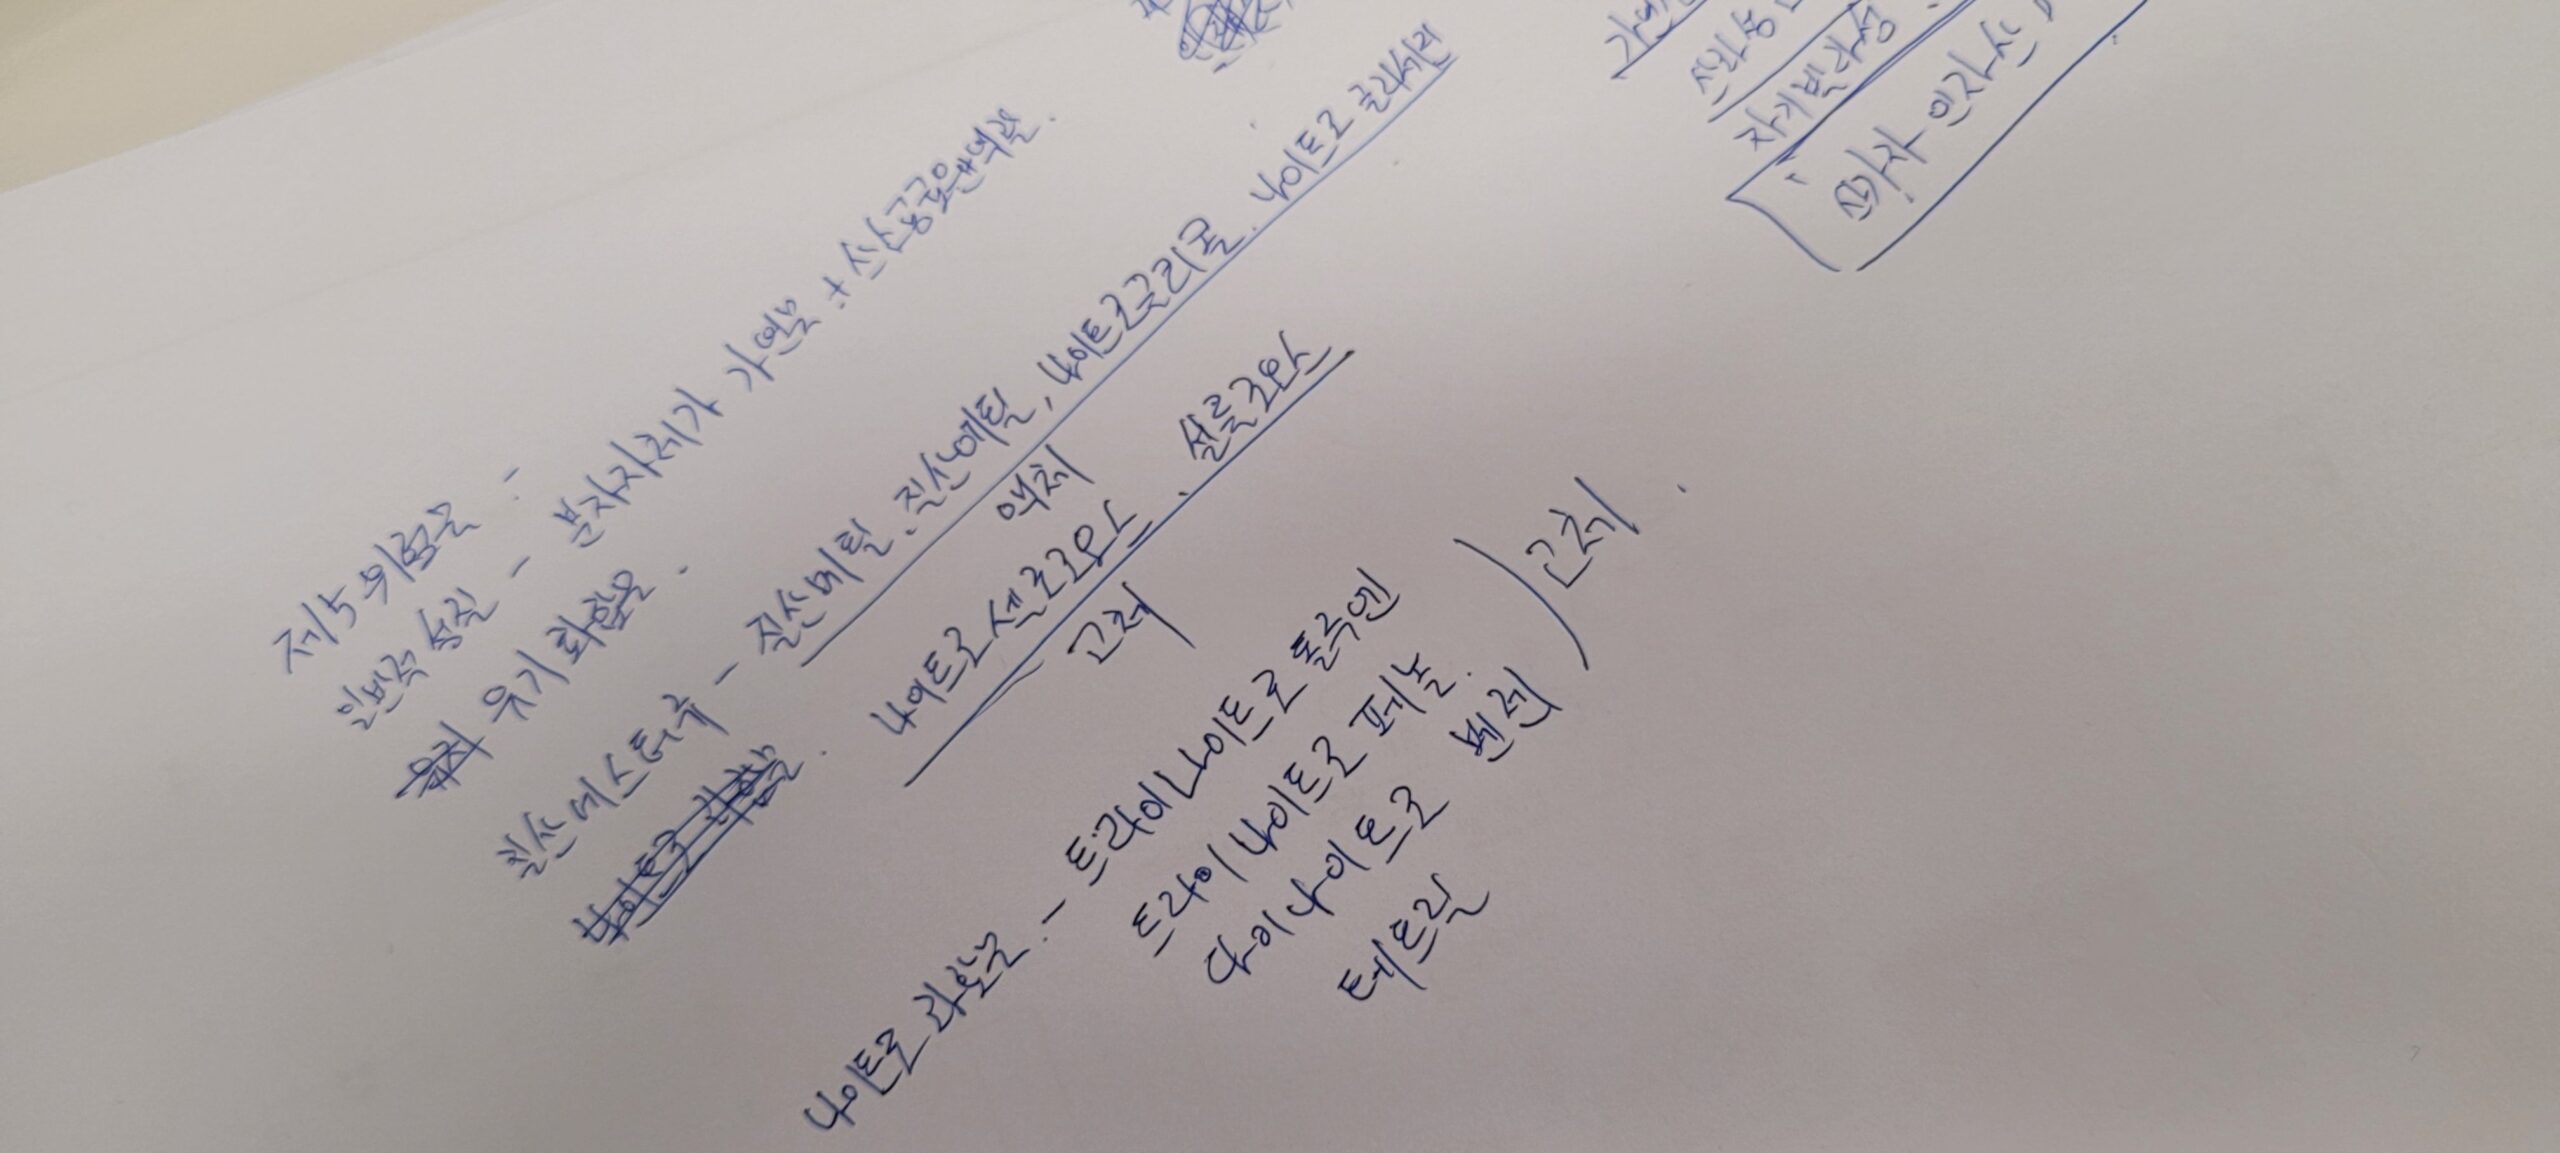 제5위험물 :
일반적 성질 - 분자자체가 가연물 + 산소공급원역할.
유기화합물.
질산에스터류 - 질산메틸. 질산에틸, 나이트로글리콜. 나이트로 글리세린
액체
나이트로셀룰로오스. 셀룰로오스
고체
나이트로 화합물. - 트라이나이트로 톨루엔
트라이 나이트로 페놀.
다이나이트로 벤젠
테트릴
고체.
자기반응성